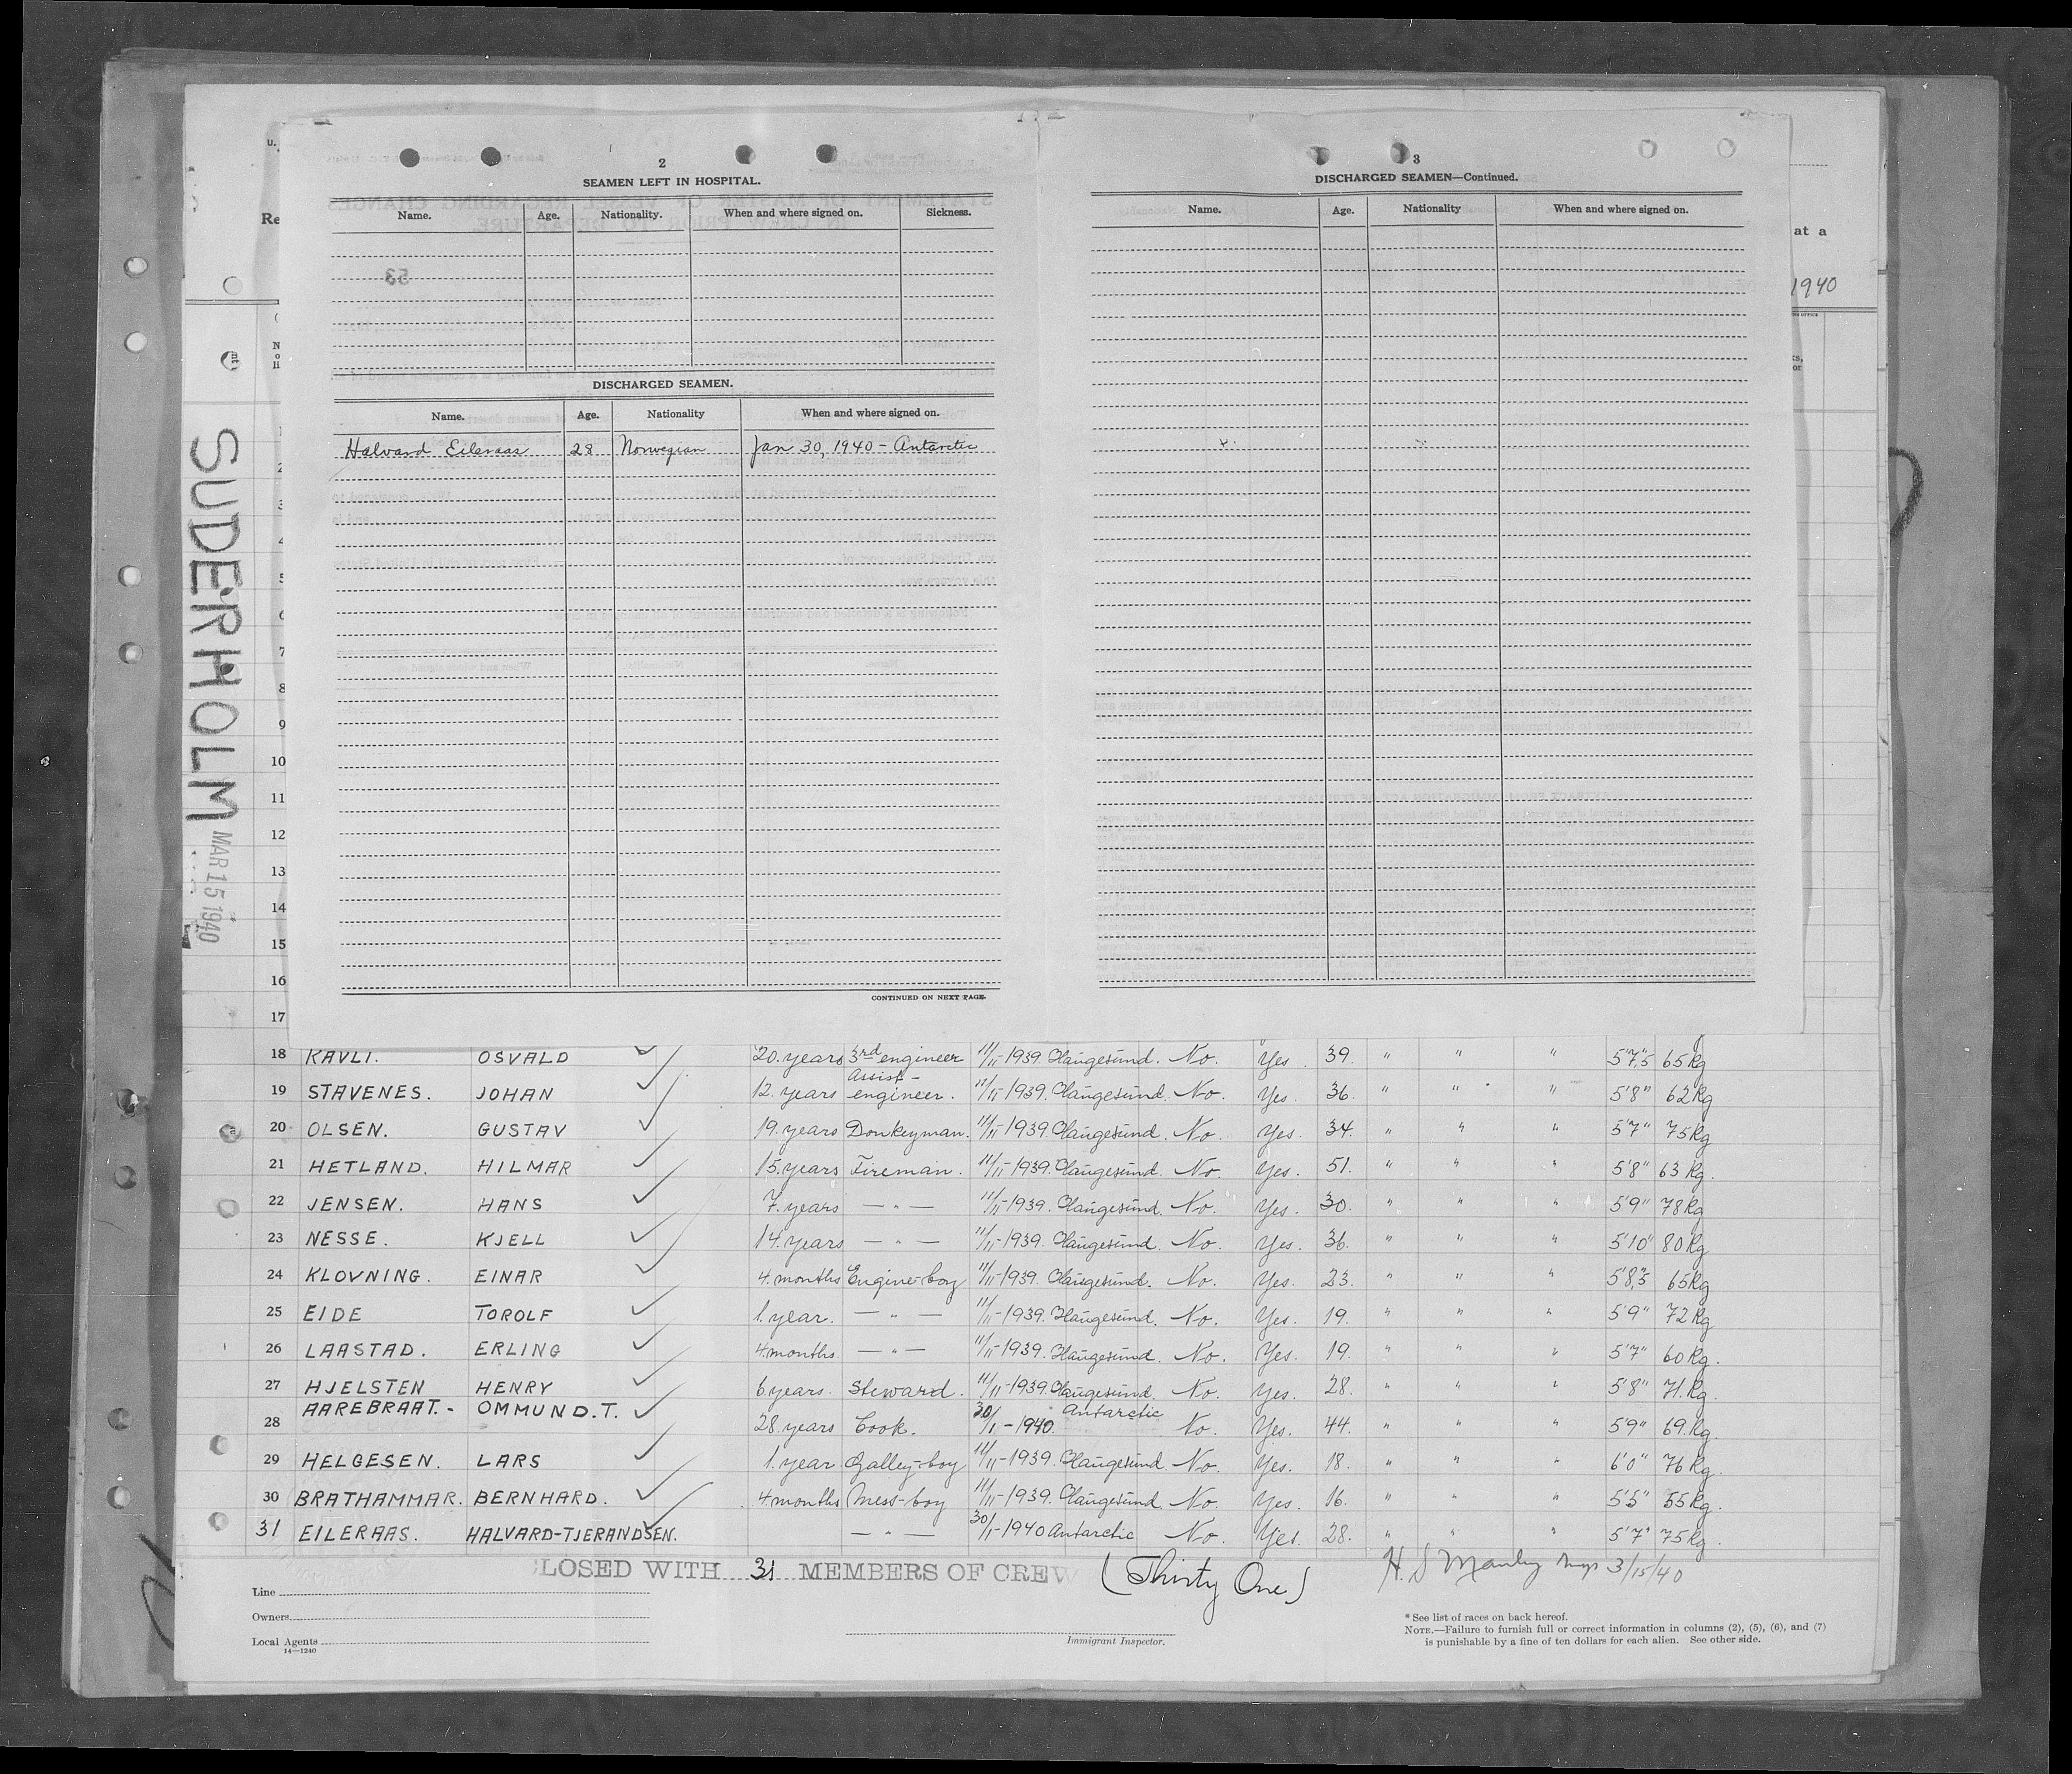 2
SEAMEN LEFT IN HOSPITAL.
Name. Age. Nationality. When and where signed on. Sickness.
DISCHARGED SEAMEN.
Name. Age. Nationality When and where signed on.
Halvard Eileraas 28 Norwegian Jan 30, 1940 - Antarctic
CONTINUED ON NEXT PAGE.
3
DISCHARGED SEAMEN—Continued.
Name. Age. Nationality When and where signed on.
u.
Re
at a
1940
SUDERHOLM
MAR 15 1940
8
9
10
11
12
13
14
15
16
17
18 KAVLI. OSVALD 20. years 3rd engineer 11/11-1939. Haugesund. No. Yes. 39. " " " 5'7,5 65 Kg
19 STAVENES. JOHAN 12. years Assist-engineer. 11/11-1939. Haugesund. No. Yes. 36. " " " 5'8" 62 Kg
20 OLSEN. GUSTAV 19. years Donkeyman. 11/11-1939. Haugesund. No. Yes. 34. " " " 5'7" 75 Kg
21 HETLAND. HILMAR 15. years Fireman. 11/11-1939. Haugesund. No. Yes. 51. " " " 5'8" 63 Kg.
22 JENSEN. HANS 7. years — " — 11/11-1939. Haugesund. No. Yes. 30. " " " 5'9" 78 Kg
23 NESSE. KJELL 14. years — " — 11/11-1939. Haugesund. No. Yes. 36. " " " 5'10" 80 Kg
24 KLOVNING. EINAR 4. months Engine-boy 11/11-1939. Haugesund. No. Yes. 23. " " " 5'8,5 65 Kg
25 EIDE TOROLF 1. year. — " — 11/11-1939. Haugesund. No. Yes. 19. " " " 5'9" 72 Kg
26 LAASTAD. ERLING 4. months. — " — 11/11-1939. Haugesund. No. Yes. 19. " " " 5'7" 60 Kg.
27 HJELSTEN HENRY 6. years. Steward. 11/11-1939. Haugesund. No. Yes. 28. " " " 5'8" 71. Kg.
28 AAREBRAAT.- OMMUND.T. 28. years Cook. 30/1-1940. Antarctic No. Yes. 44. " " " 5'9" 69. Kg.
29 HELGESEN. LARS 1. year Galley-boy 11/11-1939. Haugesund. No. Yes. 18. " " " 6'0" 76 Kg.
30 BRATHAMMAR. BERNHARD. 4. months Mess-boy 11/11-1939. Haugesund. No. Yes. 16. " " " 5'5" 55 Kg.
31 EILERAAS. HALVARD-TJERANDSEN. — " — 30/1-1940 Antarctic No. Yes. 28. " " " 5'7" 75 Kg.
CLOSED WITH 31 MEMBERS OF CREW (Thirty One) H. S Manley Insp 3/15/40
Line
Owners
Local Agents
14—1240
Immigrant Inspector.
* See list of races on back hereof.
NOTE.—Failure to furnish full or correct information in columns (2), (5), (6), and (7)
is punishable by a fine of ten dollars for each alien. See other side.